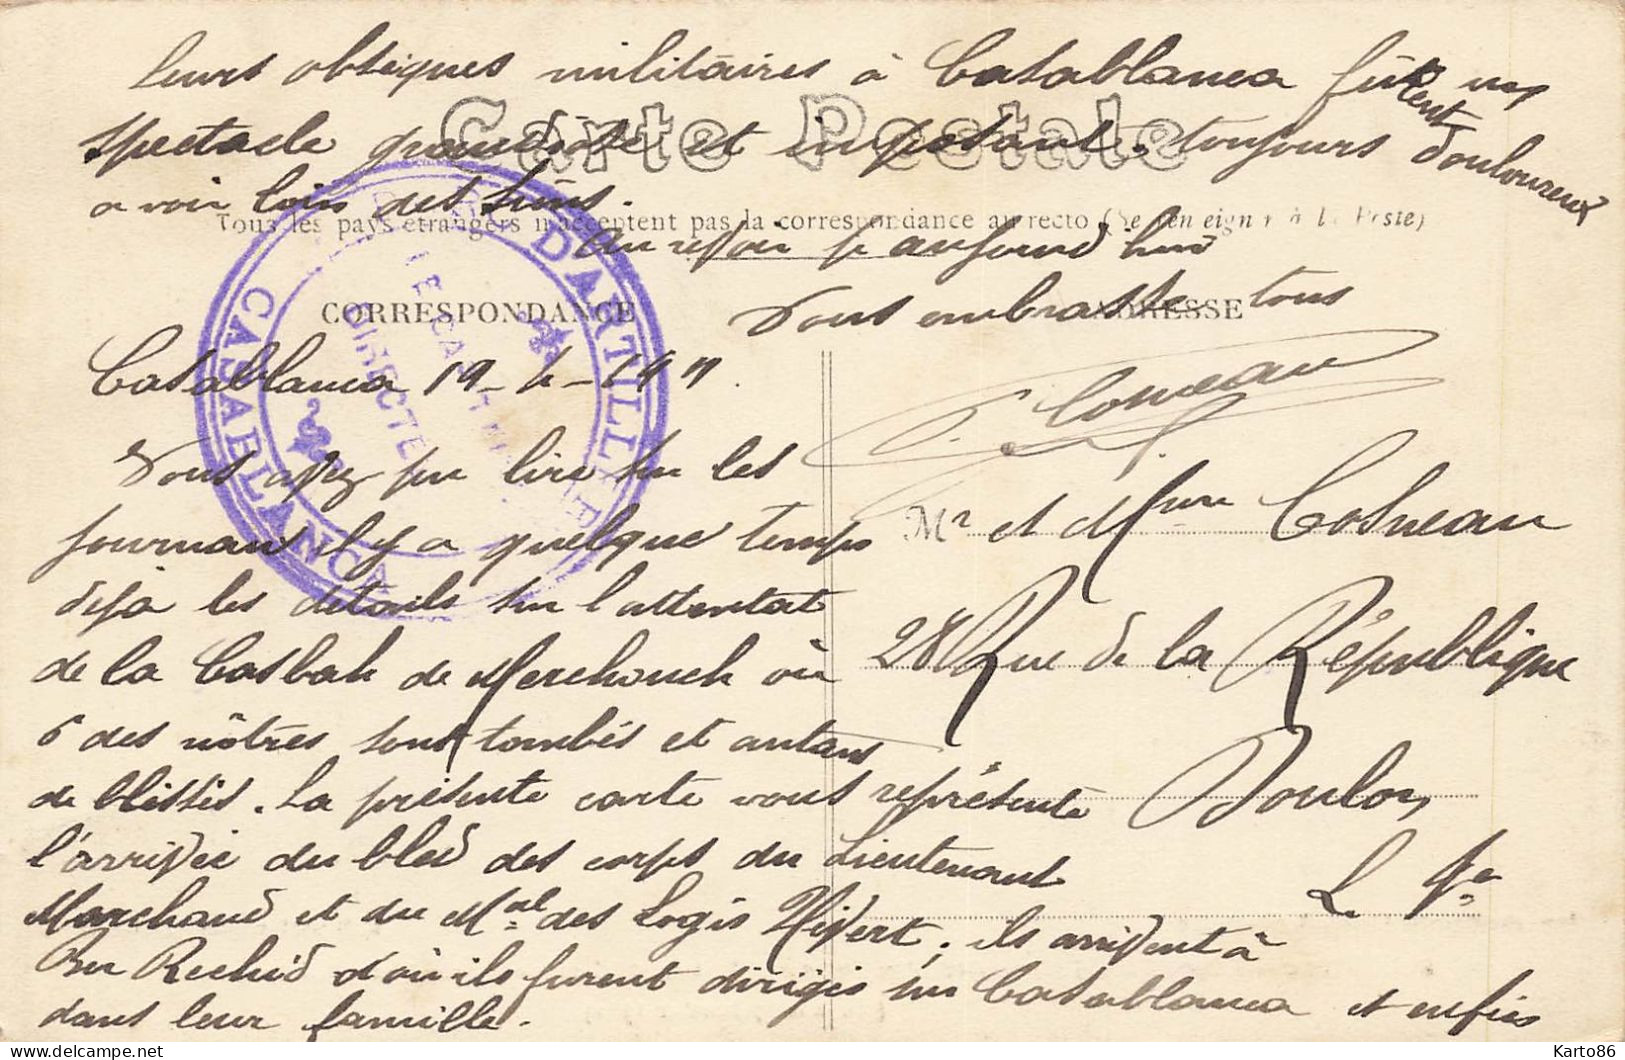 leurs obsèques militaires à Casablanca fûrent un
spectacle grandiose et imposant, toujours douloureux
a voir loin des siens.
Au revoir je aujourd hui
Vous embrasse tous
Cosneau
Carte Postale
Tous les pays étrangers n'acceptent pas la correspondance au recto (Se renseigner à la Poste)
CORRESPONDANCE
ADRESSE
D'ARTILLERIE
CASABLANCA
DIRECTE
Casablanca 19-2-1911.
Vous avez pu lire sur les
journaux il y a quelque temps
déjà les details sur l'attentat
de la Casbah de Merchouch où
6 des nôtres sont tombés et autant
de blessés. La présente carte vous représente
l'arrivée du bled des corps du Lieutenant
Marchand et du Mal des Logis Hivert, ils arrivent à
Ber Rechid d'où ils furent dirigés sur Casablanca et enfin
dans leur famille.
Mr et Mme Cosneau
28 Rue de la République
Toulon